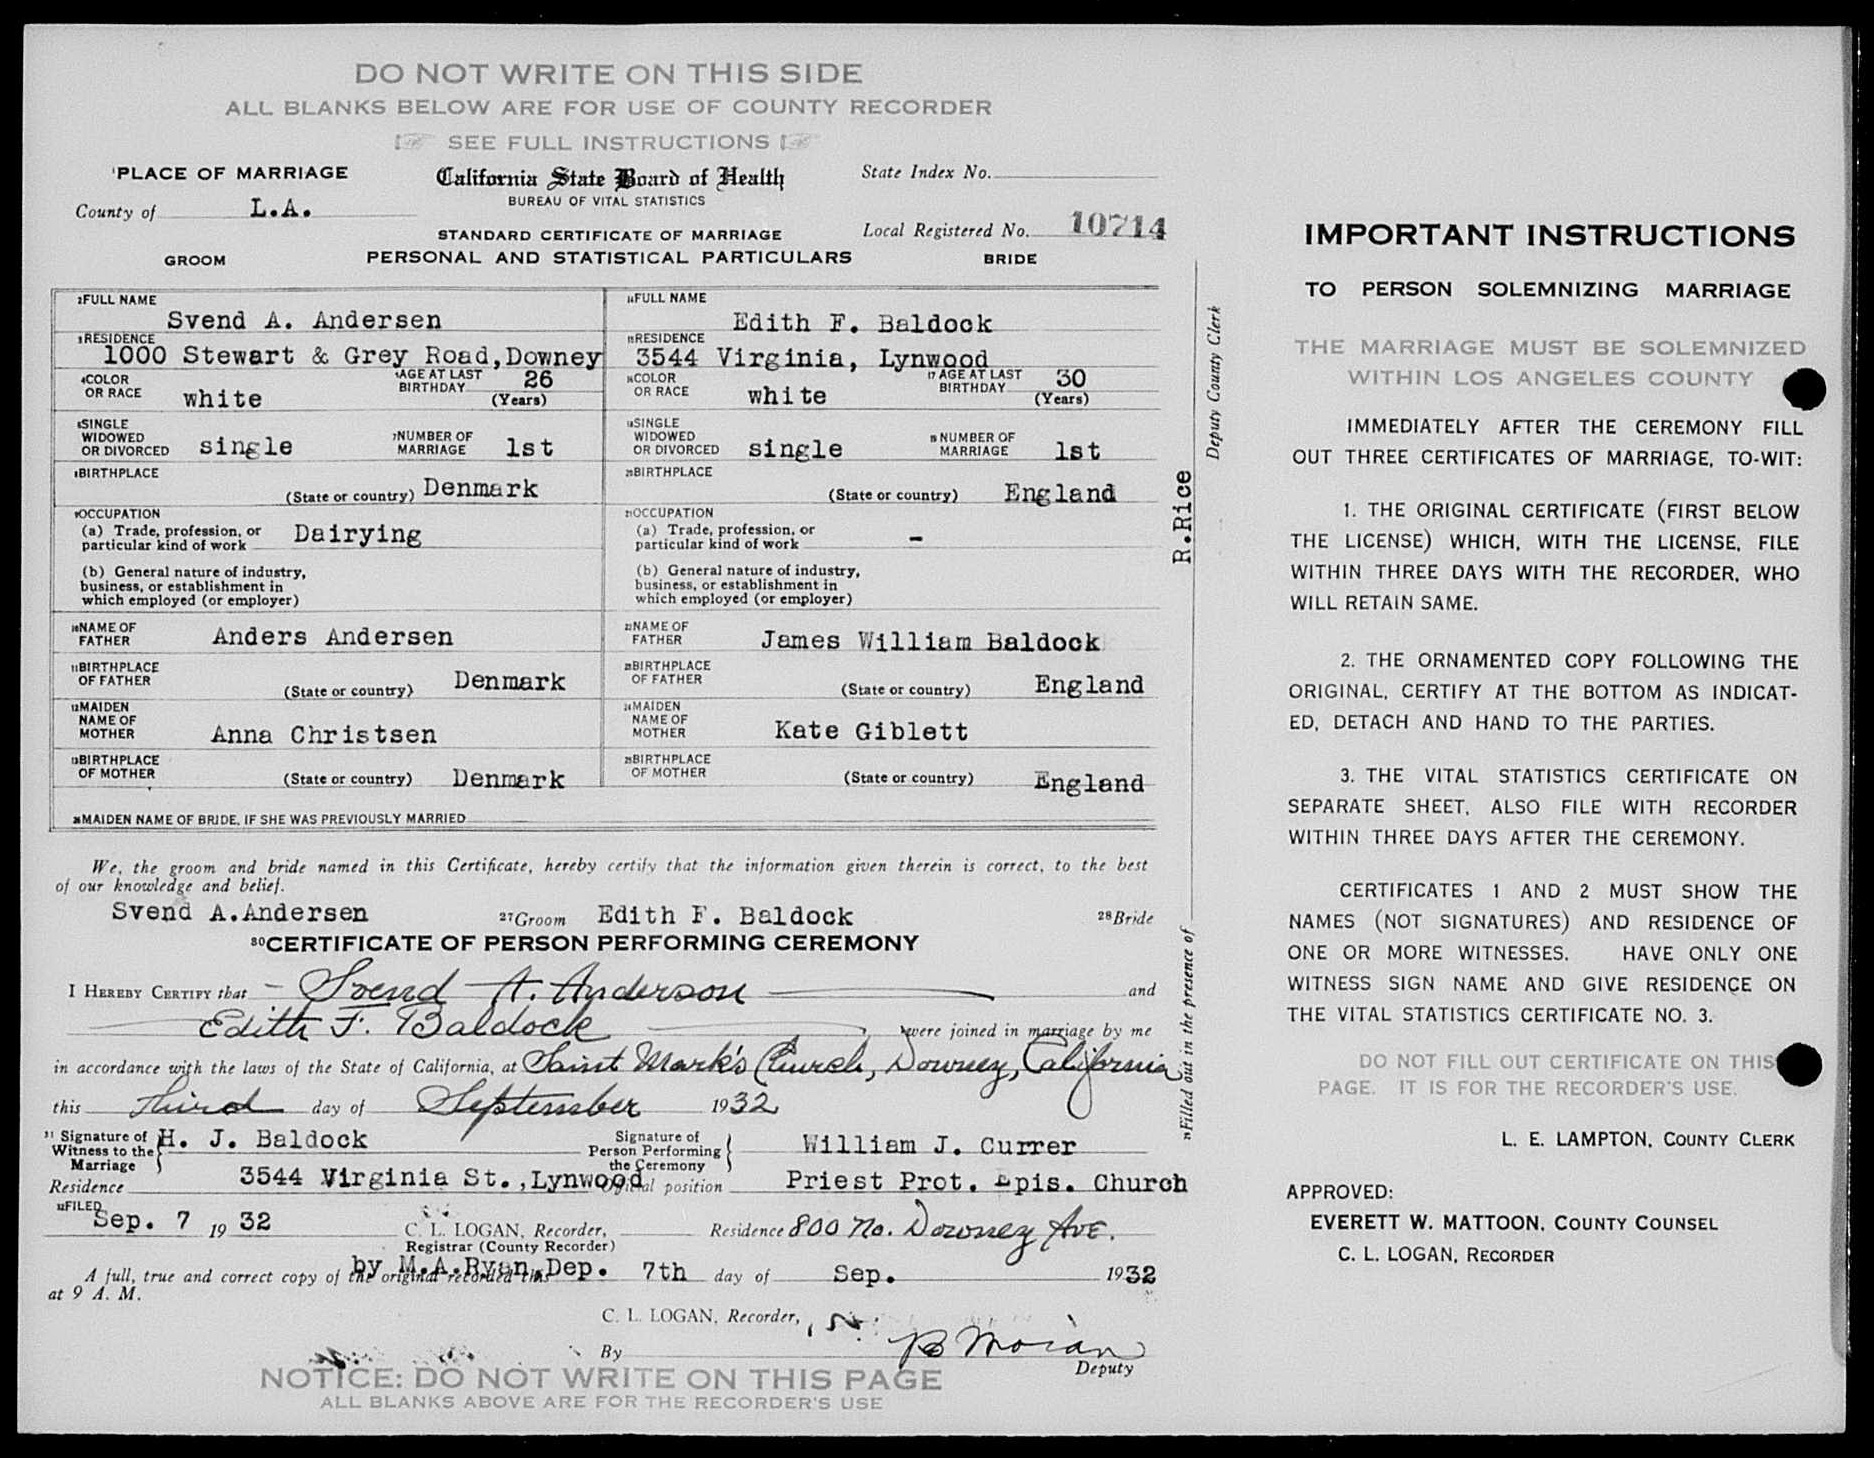 DO NOT WRITE ON THIS SIDE
ALL BLANKS BELOW ARE FOR USE OF COUNTY RECORDER
SEE FULL INSTRUCTIONS
1PLACE OF MARRIAGE
County of L.A.
California State Board of Health
BUREAU OF VITAL STATISTICS
STANDARD CERTIFICATE OF MARRIAGE
State Index No.
Local Registered No. 10714
GROOM PERSONAL AND STATISTICAL PARTICULARS BRIDE
2FULL NAME
Svend A. Andersen
3RESIDENCE
1000 Stewart & Grey Road,Downey
4COLOR OR RACE white
5AGE AT LAST BIRTHDAY 26 (Years)
6SINGLE WIDOWED OR DIVORCED single
7NUMBER OF MARRIAGE 1st
8BIRTHPLACE
(State or country) Denmark
9OCCUPATION
(a) Trade, profession, or
particular kind of work Dairying
(b) General nature of industry,
business, or establishment in
which employed (or employer)
10NAME OF FATHER Anders Andersen
11BIRTHPLACE OF FATHER
(State or country) Denmark
12MAIDEN NAME OF MOTHER Anna Christsen
13BIRTHPLACE OF MOTHER (State or country) Denmark
14FULL NAME
Edith F. Baldock
15RESIDENCE
3544 Virginia, Lynwood
16COLOR OR RACE white
17AGE AT LAST BIRTHDAY 30 (Years)
18SINGLE WIDOWED OR DIVORCED single
19NUMBER OF MARRIAGE 1st
20BIRTHPLACE
(State or country) England
21OCCUPATION
(a) Trade, profession, or
particular kind of work -
(b) General nature of industry,
business, or establishment in
which employed (or employer)
22NAME OF FATHER James William Baldock
23BIRTHPLACE OF FATHER
(State or country) England
24MAIDEN NAME OF MOTHER Kate Giblett
25BIRTHPLACE OF MOTHER (State or country) England
26MAIDEN NAME OF BRIDE, IF SHE WAS PREVIOUSLY MARRIED
We, the groom and bride named in this Certificate, hereby certify that the information given therein is correct, to the best
of our knowledge and belief.
Svend A.Andersen 27Groom Edith F. Baldock 28Bride
30CERTIFICATE OF PERSON PERFORMING CEREMONY
I HEREBY CERTIFY that Svend A. Anderson and
Edith F. Baldock were joined in marriage by me
in accordance with the laws of the State of California, at Saint Mark's Church, Downey, California
this third day of September 1932
31 Signature of Witness to the Marriage H. J. Baldock
Signature of Person Performing the Ceremony William J. Currer
Residence 3544 Virginia St.,Lynwood
Official position Priest Prot. Epis. Church
32FILED Sep. 7 1932
C. L. LOGAN, Recorder,
Registrar (County Recorder)
Residence 800 No. Downey Ave.
by M.A.Ryan,Dep.
A full, true and correct copy of the original recorded this 7th day of Sep. 1932
at 9 A. M.
C. L. LOGAN, Recorder,
By B Moran
Deputy
NOTICE: DO NOT WRITE ON THIS PAGE
ALL BLANKS ABOVE ARE FOR THE RECORDER'S USE
29Filled out in the presence of R.Rice Deputy County Clerk
IMPORTANT INSTRUCTIONS
TO PERSON SOLEMNIZING MARRIAGE
THE MARRIAGE MUST BE SOLEMNIZED
WITHIN LOS ANGELES COUNTY
IMMEDIATELY AFTER THE CEREMONY FILL
OUT THREE CERTIFICATES OF MARRIAGE, TO-WIT:
1. THE ORIGINAL CERTIFICATE (FIRST BELOW
THE LICENSE) WHICH, WITH THE LICENSE, FILE
WITHIN THREE DAYS WITH THE RECORDER, WHO
WILL RETAIN SAME.
2. THE ORNAMENTED COPY FOLLOWING THE
ORIGINAL, CERTIFY AT THE BOTTOM AS INDICAT-
ED, DETACH AND HAND TO THE PARTIES.
3. THE VITAL STATISTICS CERTIFICATE ON
SEPARATE SHEET, ALSO FILE WITH RECORDER
WITHIN THREE DAYS AFTER THE CEREMONY.
CERTIFICATES 1 AND 2 MUST SHOW THE
NAMES (NOT SIGNATURES) AND RESIDENCE OF
ONE OR MORE WITNESSES. HAVE ONLY ONE
WITNESS SIGN NAME AND GIVE RESIDENCE ON
THE VITAL STATISTICS CERTIFICATE NO. 3.
DO NOT FILL OUT CERTIFICATE ON THIS
PAGE. IT IS FOR THE RECORDER'S USE.
L. E. LAMPTON, COUNTY CLERK
APPROVED:
EVERETT W. MATTOON, COUNTY COUNSEL
C. L. LOGAN, RECORDER